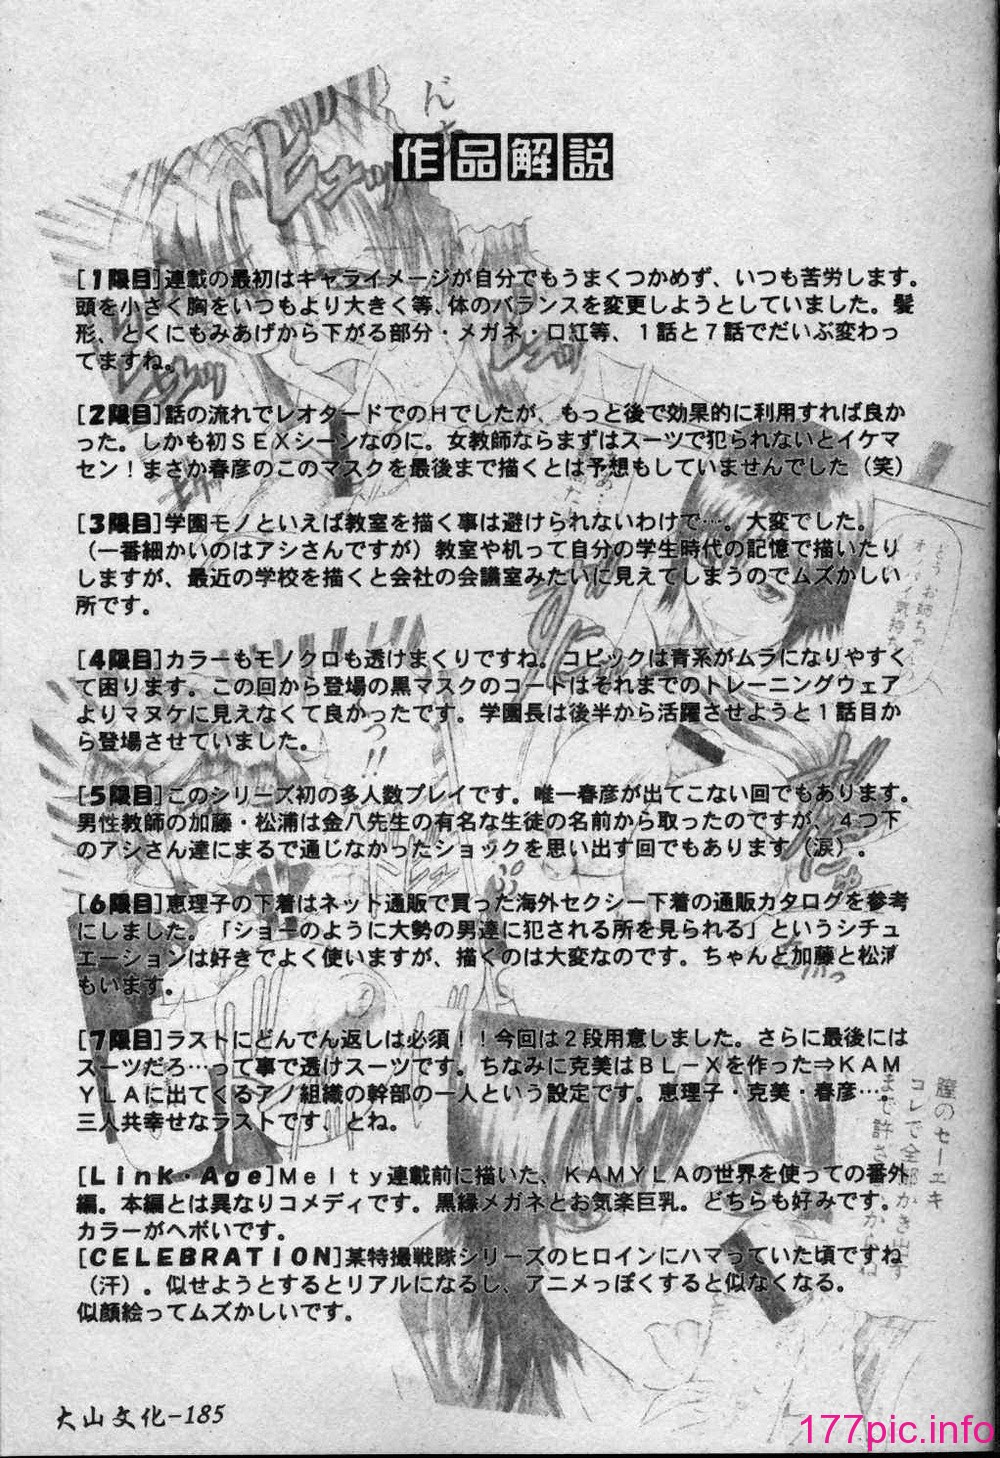 作品解説
[1限目]連載の最初はキャライメージが自分でもうまくつかめず、いつも苦労します。
頭を小さく胸をいつもより大きく等、体のバランスを変更しようとしていました。髪
形、とくにもみあげから下がる部分・メガネ・口紅等、１話と７話でだいぶ変わっ
てますね。
[2限目]話の流れでレオタードでのＨでしたが、もっと後で効果的に利用すれば良か
った。しかも初ＳＥＸシーンなのに。女教師ならまずはスーツで犯られないとイケマ
セン！まさか春彦のこのマスクを最後まで描くとは予想もしていませんでした（笑）
[3限目]学園モノといえば教室を描く事は避けられないわけで…。大変でした。
（一番細かいのはアシさんですが）教室や机って自分の学生時代の記憶で描いたり
しますが、最近の学校を描くと会社の会議室みたいに見えてしまうのでムズかしい
所です。
[4限目]カラーもモノクロも透けまくりですね。コピックは青系がムラになりやすく
て困ります。この回から登場の黒マスクのコートはそれまでのトレーニングウェア
よりマヌケに見えなくて良かったです。学園長は後半から活躍させようと１話目か
ら登場させていました。
[5限目]このシリーズ初の多人数プレイです。唯一春彦が出てこない回でもあります。
男性教師の加藤・松浦は金八先生の有名な生徒の名前から取ったのですが、４つ下
のアシさん達にまるで通じなかったショックを思い出す回でもあります（涙）。
[6限目]恵理子の下着はネット通販で買った海外セクシー下着の通販カタログを参考
にしました。「ショーのように大勢の男達に犯される所を見られる」というシチュ
エーションは好きでよく使いますが、描くのは大変なのです。ちゃんと加藤と松浦
もいます。
[7限目]ラストにどんでん返しは必須！！今回は２段用意しました。さらに最後には
スーツだろ…って事で透けスーツです。ちなみに克美はＢＬ−Ｘを作った⇒ＫＡＭ
ＹＬＡに出てくるアノ組織の幹部の一人という設定です。恵理子・克美・春彦…・
三人共幸せなラストです、とね。
[Link・Age]Ｍｅｌｔｙ連載前に描いた、ＫＡＭＹＬＡの世界を使っての番外
編。本編とは異なりコメディです。黒縁メガネとお気楽巨乳。どちらも好みです。
カラーがヘボいです。
[CELEBRATION]某特撮戦隊シリーズのヒロインにハマっていた頃ですね
（汗）。似せようとするとリアルになるし、アニメっぽくすると似なくなる。
似顔絵ってムズかしいです。
大山文化-185
177pic.info